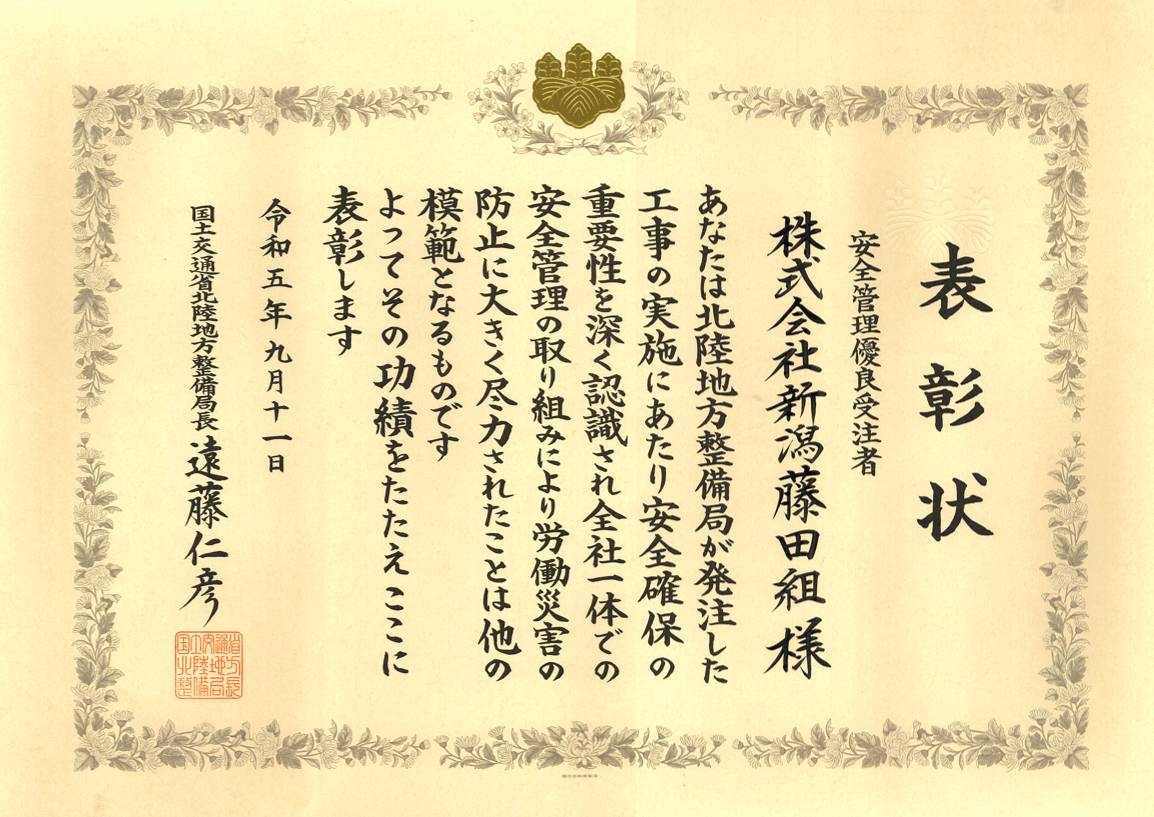 表彰状
安全管理優良受注者
株式会社新潟藤田組様
あなたは北陸地方整備局が発注した
工事の実施にあたり安全確保の
重要性を深く認識され全社一体での
安全管理の取り組みにより労働災害の
防止に大きく尽力されたことは他の
模範となるものです
よってその功績をたたえここに
表彰します
令和五年九月十一日
国土交通省北陸地方整備局長 遠藤仁彦